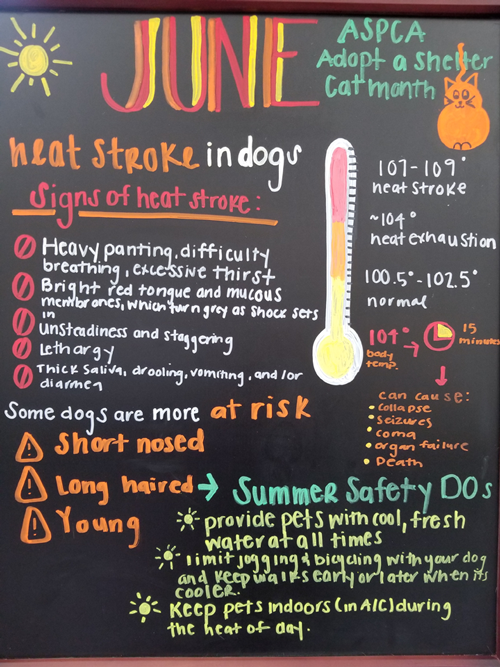 JUNE
ASPCA
Adopt a shelter
Cat month
heat stroke in dogs
Signs of heat stroke:
Heavy panting, difficulty
breathing, excessive thirst
Bright red tongue and mucous
membranes, which turn grey as shock sets
in
Unsteadiness and staggering
Lethargy
Thick saliva, drooling, vomiting, and/or
diarrhea
107-109°
heat stroke
~104°
heat exhaustion
100.5°-102.5°
normal
104° → 15
minutes
body
temp.
can cause:
• collapse
• seizures
• coma
• organ failure
• Death
Some dogs are more at risk
Short nosed
Long haired →
Young
Summer Safety DOs
provide pets with cool, fresh
water at all times
limit jogging & bicycling with your dog
and keep walks early or later when its
cooler.
Keep pets indoors (in A/C) during
the heat of day.